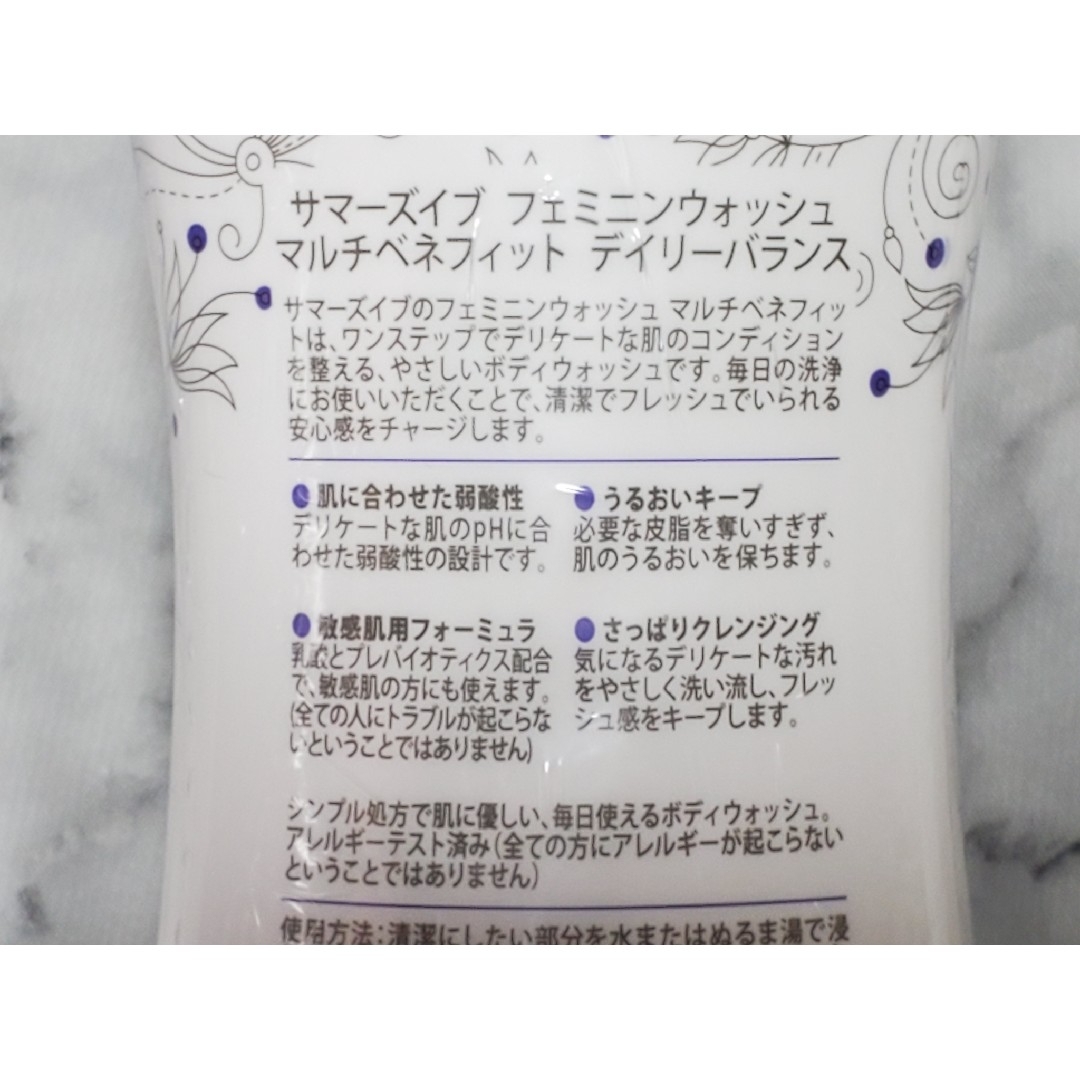 サマーズイブ フェミニンウォッシュ
マルチベネフィット デイリーバランス
サマーズイブのフェミニンウォッシュ マルチベネフィッ
トは、ワンステップでデリケートな肌のコンディション
を整える、やさしいボディウォッシュです。毎日の洗浄
にお使いいただくことで、清潔でフレッシュでいられる
安心感をチャージします。
● 肌に合わせた弱酸性
デリケートな肌のpHに合
わせた弱酸性の設計です。
● うるおいキープ
必要な皮脂を奪いすぎず、
肌のうるおいを保ちます。
● 敏感肌用フォーミュラ
乳酸とプレバイオティクス配合
で、敏感肌の方にも使えます。
(全ての人にトラブルが起こらな
いということではありません)
● さっぱりクレンジング
気になるデリケートな汚れ
をやさしく洗い流し、フレッ
シュ感をキープします。
シンプル処方で肌に優しい、毎日使えるボディウォッシュ。
アレルギーテスト済み(全ての方にアレルギーが起こらない
ということではありません)
使用方法:清潔にしたい部分を水またはぬるま湯で浸